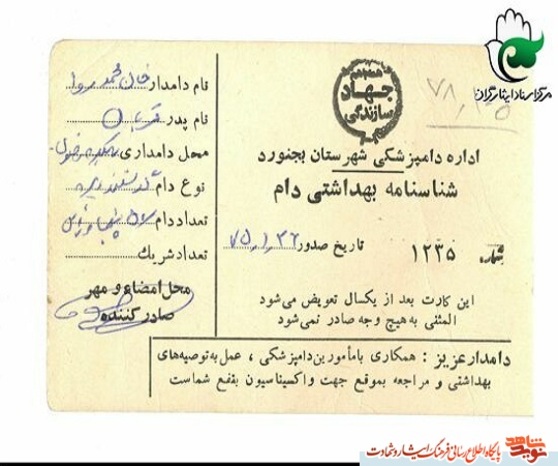 مرکز اسناد ایثارگران
همه با هم
جهاد
سازندگی
۷۸
اداره دامپزشکی شهرستان بجنورد
شناسنامه بهداشتی دام
شماره ۱۲۳۵ تاریخ صدور
این کارت بعد از یکسال تعویض می‌شود
المثنی به هیچ وجه صادر نمی‌شود
نام دامدار خان محمد
نام پدر قربان
محل دامداری
نوع دام گوسفند
تعداد دام
تعداد شریك
محل امضاء و مهر
صادر کننده
دامدار عزیز : همکاری با مأمورین دامپزشکی ، عمل به توصیه‌های
بهداشتی و مراجعه بموقع جهت واکسیناسیون بنفع شماست
نوید شاهد
پایگاه اطلاع رسانی فرهنگ ایثار و شهادت